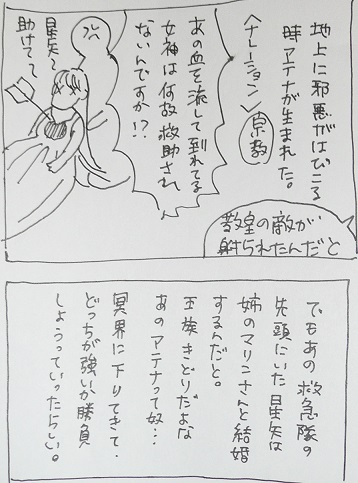 地上に邪悪がはびこる
時アテナが生まれた。
〈ナレーション〉
宗教
あの血を流して倒れてる
女神は何故救助され
ないんですか!?
星矢〜
助けて〜
教皇の敵が
射られたんだと
でもあの救急隊の
先頭にいた星矢は
姉のマリンさんと結婚
するんだと。
王族きどりだよな
あのアテナって奴…
冥界に下りてきて・
どっちが強いか勝負
しようっていったらしい。